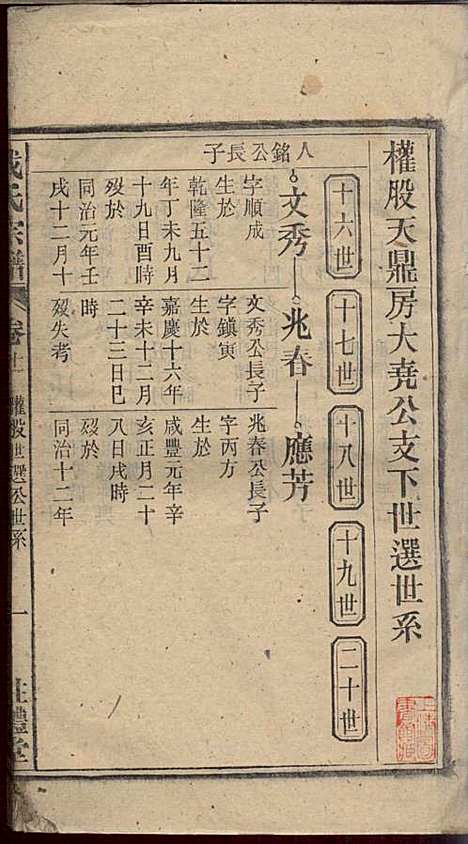 權股天鼎房大堯公支下世選世系
十六世
十七世
十八世
十九世
二十世
人銘公長子
文秀
兆春
應芳
字順成
生於
乾隆五十二
年丁未九月
十九日酉時
歿於
同治元年壬
戌十二月十
文秀公長子
字鎮寅
生於
嘉慶十六年
辛未十二月
二十三日巳
時
歿失考
兆春公長子
字丙方
生於
咸豐元年辛
亥正月二十
八日戌時
歿於
同治十二年
氏宗譜
卷十一
權股世選公世系
一
禮堂